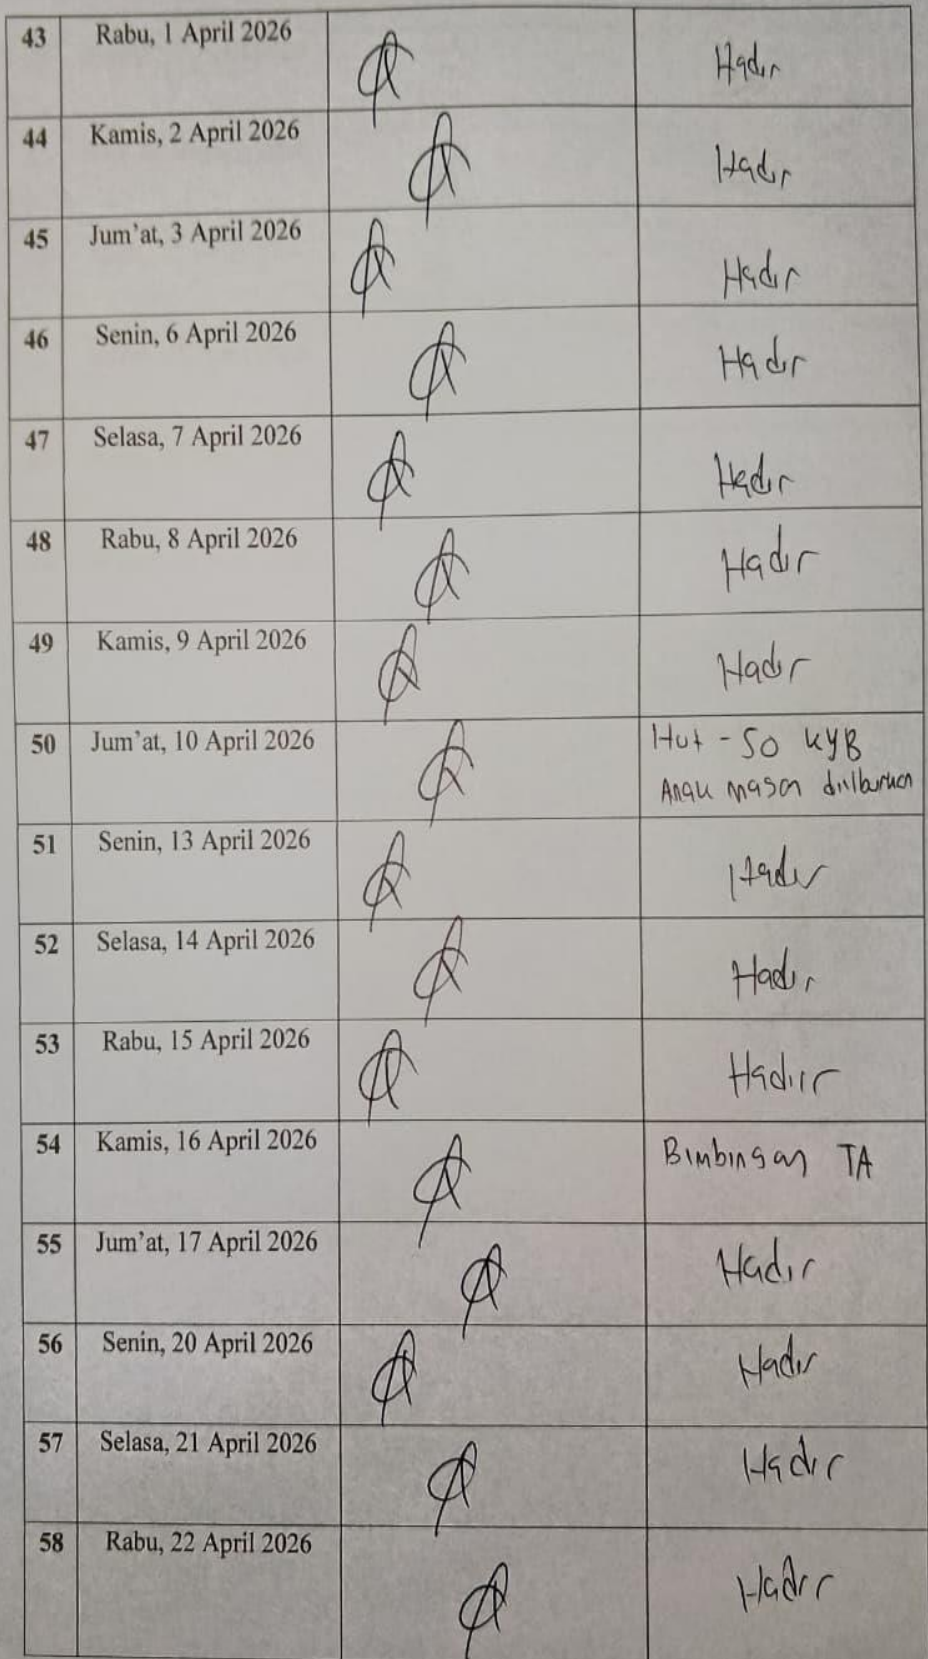 43 Rabu, 1 April 2026 Hadir
44 Kamis, 2 April 2026 Hadir
45 Jum'at, 3 April 2026 Hadir
46 Senin, 6 April 2026 Hadir
47 Selasa, 7 April 2026 Hadir
48 Rabu, 8 April 2026 Hadir
49 Kamis, 9 April 2026 Hadir
50 Jum'at, 10 April 2026 Hut - 50 KYB
Anak magan diliburkan
51 Senin, 13 April 2026 Hadir
52 Selasa, 14 April 2026 Hadir
53 Rabu, 15 April 2026 Hadiir
54 Kamis, 16 April 2026 Bimbingan TA
55 Jum'at, 17 April 2026 Hadir
56 Senin, 20 April 2026 Hadir
57 Selasa, 21 April 2026 Hadir
58 Rabu, 22 April 2026 Hadir